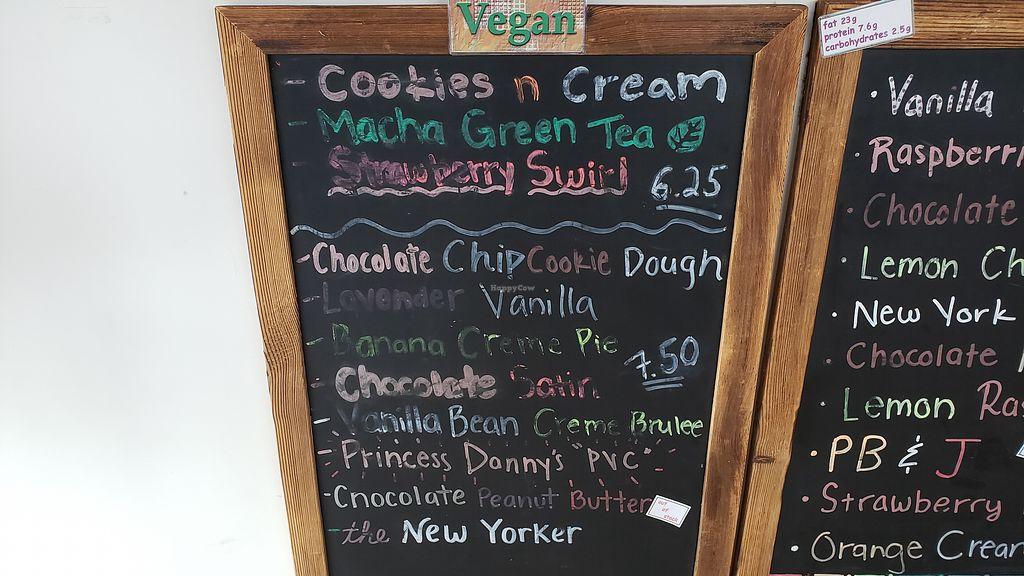 Vegan
- Cookies n Cream
- Macha Green Tea
- Strawberry Swirl
6.25
- Chocolate Chip Cookie Dough
- Lavender Vanilla
- Banana Creme Pie
7.50
- Chocolate Satin
- Vanilla Bean Creme Brulee
- Princess Donny's "PVC"
- Chocolate Peanut Butter
out of stock
- the New Yorker
HappyCow
fat 23g
protein 7.6g
carbohydrates 2.5g
· Vanilla
· Raspberr
· Chocolate
· Lemon Ch
· New York
· Chocolate
· Lemon Ra
· PB & J
· Strawberry
· Orange Crea